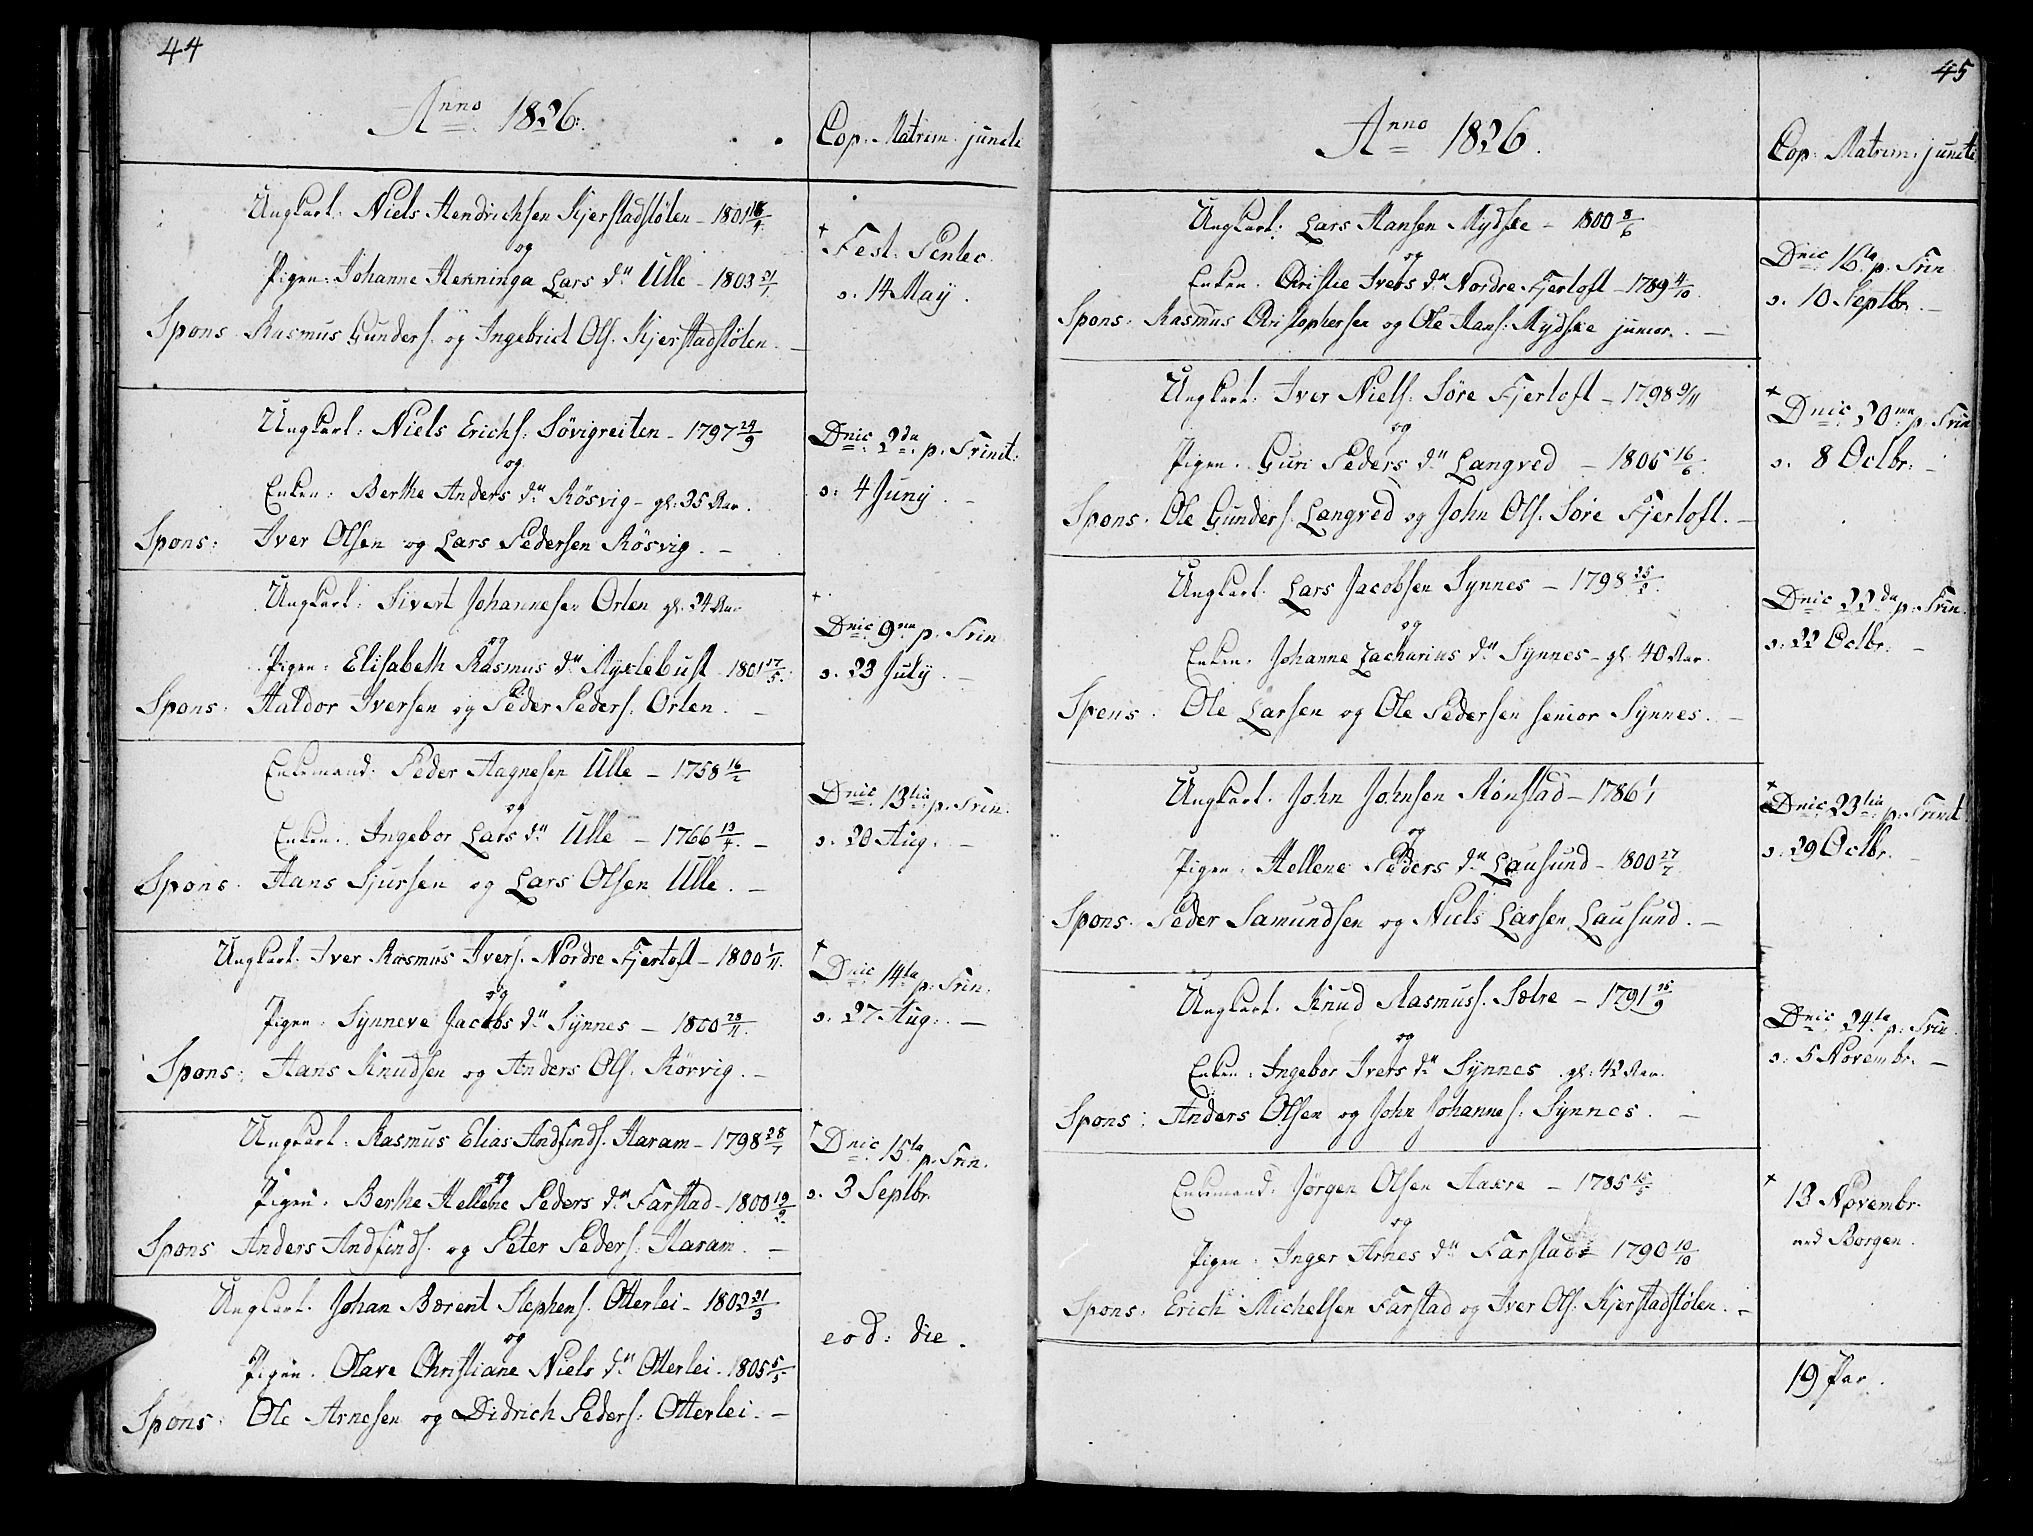 44
Anno 1826.
Cop: Matrim: juncti
Ungkarl: Niels Hendrichsen Kjerstadstölen - 1801 18/4
og
Pigen: Johanne Henninga Lars dr Ulle - 1803 21/1
Spons. Rasmus Gunders. og Ingebrict Ols. Kjerstadstölen. -
+ Fest: Pentec.
o: 14 May.
Ungkarl: Niels Erichs: Sövigreiten - 1797 24/9
og
Enken: Berthe Anders dr Rösvig - gl: 35 Aar.
Spons: Iver Olsen og Lars Pedersen Rösvig. -
Dnic: 2da p. Trinit:
o: 4 Juny. -
Ungkarl: Sivert Johannesen Orten gl. 24 Aar
og
Pigen: Elisabeth Rasmus dr Myclebust - 1801 17/5.
Spons: Haldor Iversen og Peder Peders: Orten. -
+
Dnic 9na p. Trin.
o. 23 July. -
Enkemand: Peder Aagnesen Ulle - 1758 16/2
og
Enken. Ingebor Lars dr Ulle - 1766 13/4. -
Spons. Hans Sjursen og Lars Olsen Ulle. -
Dnic: 13tia p. Trin.
o. 20 Aug. -
Ungkarl. Iver Rasmus Ivers. Nordre Fjertoft - 1800 1/11.
og
Pigen: Synneve Jacobs dr Synnes - 1800 28/11.
Spons: Hans Knudsen og Anders Ols. Rörvig. -
+
Dnic: 14ta p. Trin.
o. 27 Aug. -
Ungkarl: Rasmus Elias Andfinds. Haram - 1798 28/7
og
Pigen. Berthe Hellene Peders dr Farstad - 1800 19/2
Spons Anders Andfinds. og Peter Peders: Haram. -
+ Dnic 15ta p. Trin.
o. 3 Septbr.
Ungkarl. Johan Berent Stephens. Otterlei - 1802 21/3
og
Pigen. Olave Christiane Niels dr Otterlei - 1805 5/5
Spons: Ole Arnesen og Didrich Peders: Otterlei. -
eod: die.
45
Anno 1826.
Cop: Matrim: juncti
Ungkarl: Lars Hansen Mydske - 1800 8/6
og
Enken. Christie Ivers dr Nordre Fjertoft - 1789 4/10.
Spons: Rasmus Christophersen og Ole Hans: Mydske junior. -
Dnic 16ta p. Trin
o. 10 Septbr. -
Ungkarl: Iver Niels: Söre Fjertoft - 1798 9/11
og
Pigen. Guri Peders dr Langved - 1805 16/6.
Spons. Ole Gunders. Langved og John Ols. Söre Fjertoft. -
+
Dnic: 20ma p. Trin
o. 8 Octbr: -
Ungkarl. Lars Jacobsen Synnes - 1798 25/2.
og
Enken. Johanne Zacharias dr Synnes - gl. 40 Aar.
Spons. Ole Larsen og Ole Pedersen senior Synnes. -
Dnic 22da p. Trin.
o. 22 Octbr. -
Ungkarl. John Johnsen Rönstad - 1786 1/1
og
Pigen: Hellene Peders dr Lausund - 1800 27/7
Spons. Peder Samundsen og Niels Larsen Lausund. -
+
Dnic: 23tia p: Trinit
o. 29 Octbr. -
Ungkarl. Knud Rasmuss. Sætre - 1791 25/9
og
Enken: Ingebor Ivers dr Synnes. gl: 42 Aar.
Spons: Anders Olsen og John Johannes: Synnes. -
Dnic 24ta p: Trin.
o. 5 Novembr. -
Enkemand. Jörgen Olsen Aakre - 1785 15/5.
og
Pigen: Inger Arnes dr Farstad - 1790 10/10
Spons: Erich Michelsen Farstad og Iver Ols: Kjerstadstölen. -
+
13 Novembr.
ved Borgen.
19 Par.